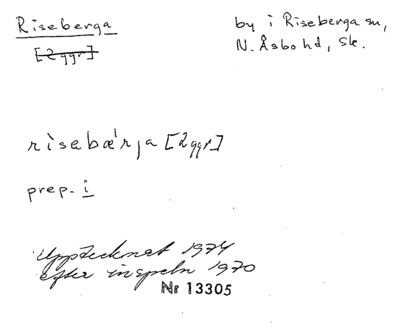 Riseberga
by i Riseberga sn,
[2ggr]
N. Åsbo hd, Sk.
rìsebæ´rja [2ggr]
prep. i
Upptecknat 1974
efter inspeln 1970
Nr 13305